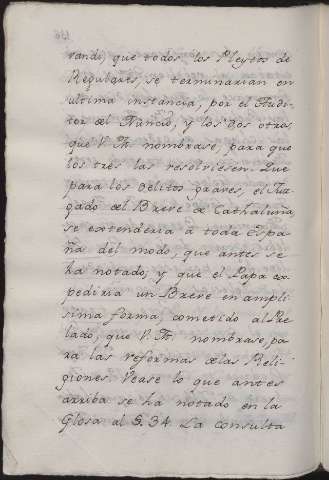 randi, que todos los Pleytos de
Regulares, se terminarian en
ultima instancia, por el Audi-
tor del Nuncio, y los dos otros,
que V. M. nombrase, para que
los tres las resolviesen. Que
para los delitos graves, el Juz-
gado del Breve de Cathaluña,
se extenderia à toda Espa-
ña del modo, que antes se
ha notado; y que el Papa ex-
pediria un Breve en ampli-
sima forma, cometido al Pre-
lado, que V. M. nombrase, pa-
ra las reformas de las Reli-
giones. Vease lo que antes
arriba se ha notado en la
Glosa al §. 34. La consulta